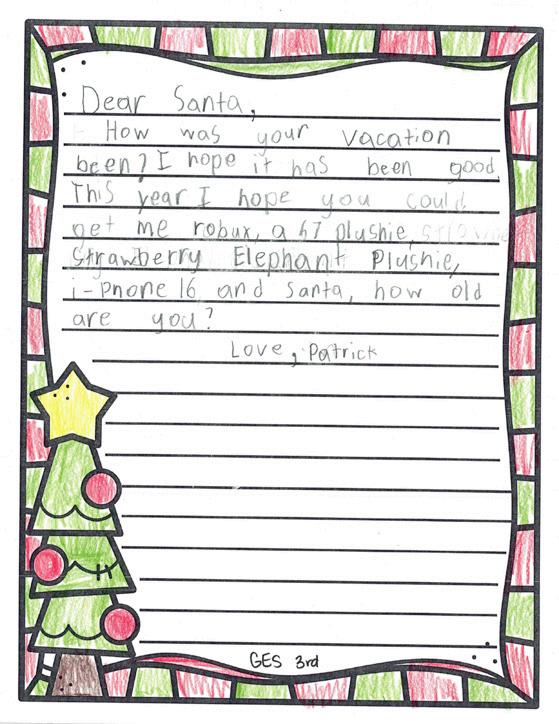 Dear Santa,
How was your vacation
been? I hope it has been good.
This year I hope you could
get me robux, a 67 plushie,
Strawberry Elephant Plushie,
i-Phone 16 and Santa, how old
are you?
Love, Patrick
GES 3rd